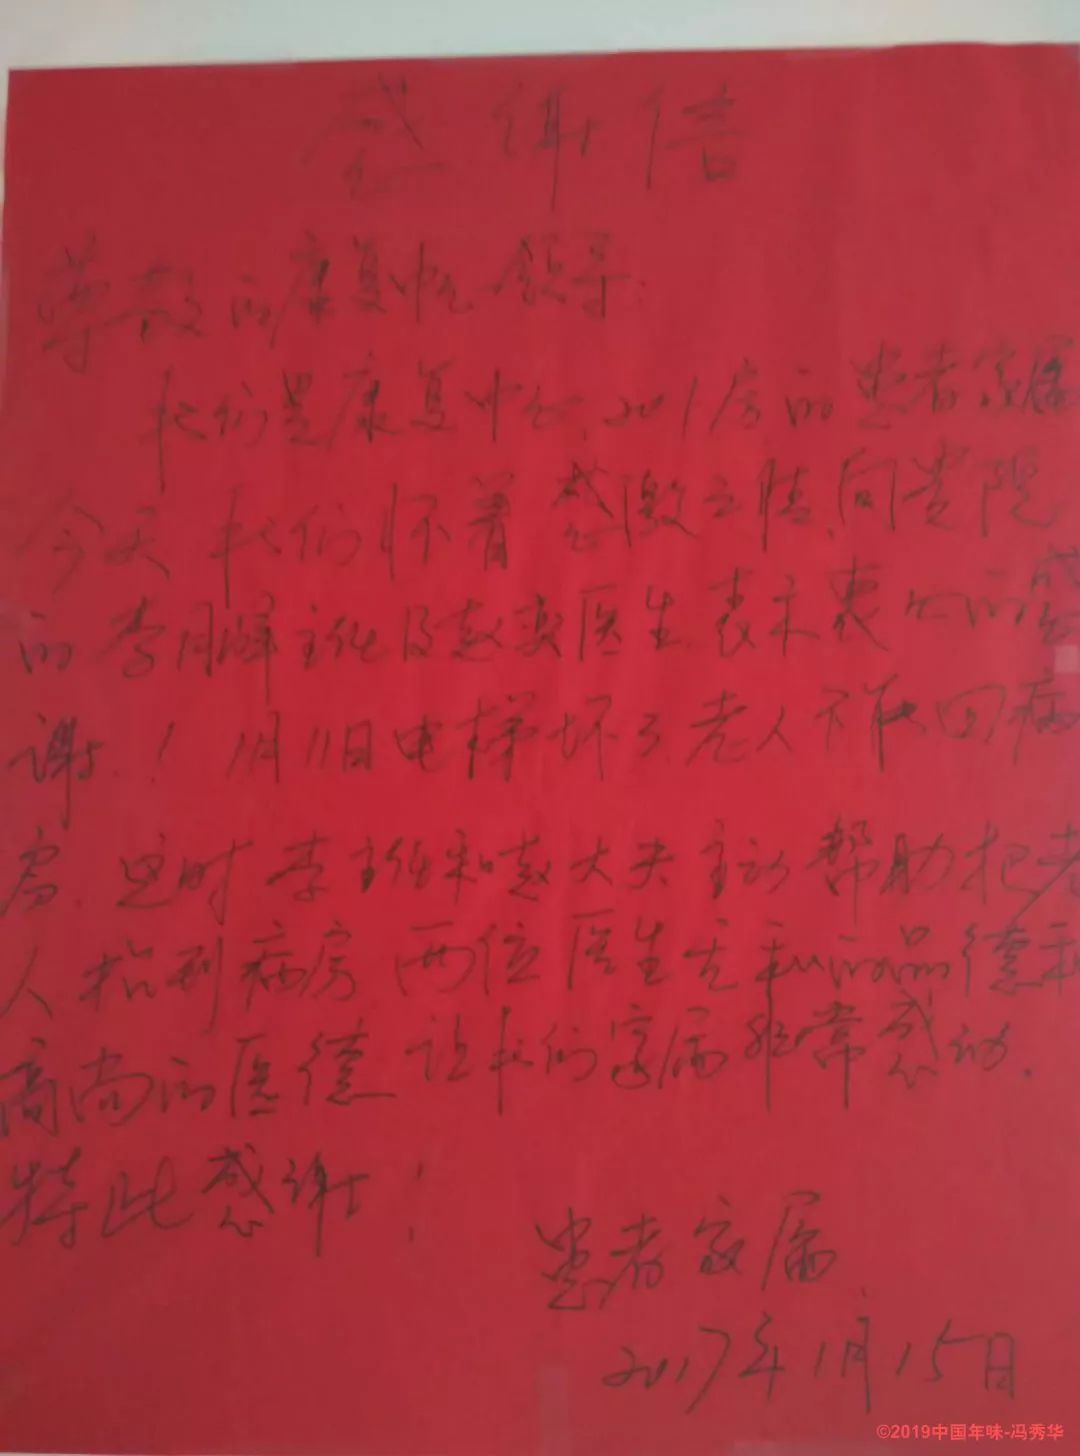 感谢信
尊敬的康复中心领导:
我们是康复中心201房的患者家属
今天我们怀着感激之情,向贵院
的李月峰主任及赵爽医生表示衷心的感
谢.!1月11日电梯坏了.老人不能回病
房.这时李主任和赵大夫主动帮助把老
人抬到病房两位医生无私的品德和
高尚的医德让我们家属非常感动.
特此感谢!
患者家属
2017年1月15日
©2019中国年味-冯秀华